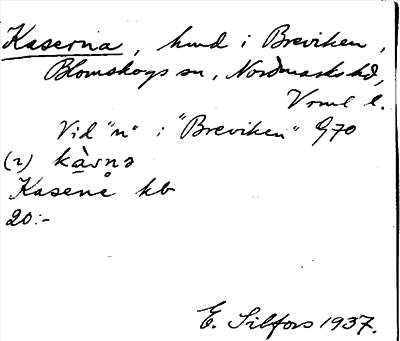 Kaserna, hmd i Breviken,
Blomskogs sn, Nordmarks hd,
Vrml l.
Vid "n" i "Breviken" G70
(2) kàsnə
Kasenå kb
20:-
E. Silfors 1937.